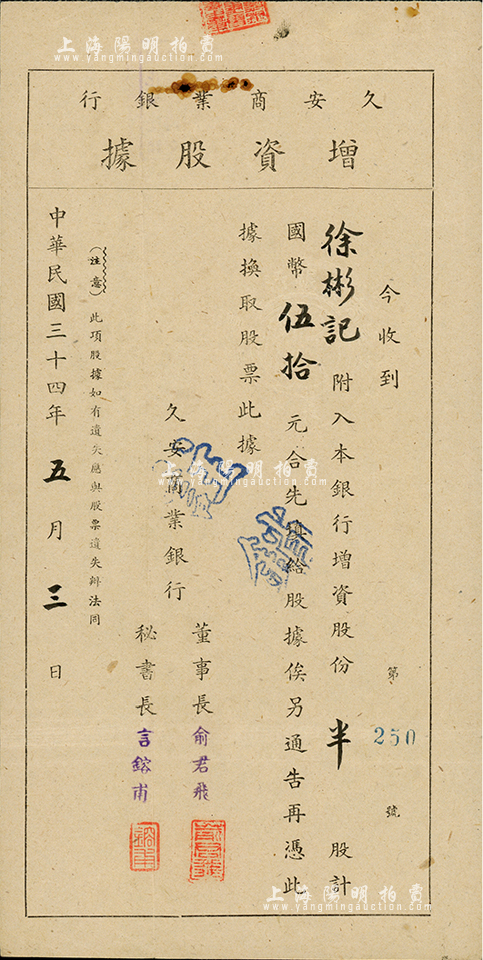 上海陽明拍賣
www.yangmingauction.com
久安商業銀行
增資股據
第 250 號
今收到
徐彬記 附入本銀行增資股份 半 股計
國幣 伍拾 元合先填給股據俟另通告再憑此
據換取股票此據
久安商業銀行
董事長 俞君飛
秘書長 言鎔甫
(注意)此項股據如有遺失應與股票遺失辦法同
中華民國三十四年 五 月 三 日
上海陽明拍賣
www.yangmingauction.com
上海陽明拍賣
www.yangmingauction.com